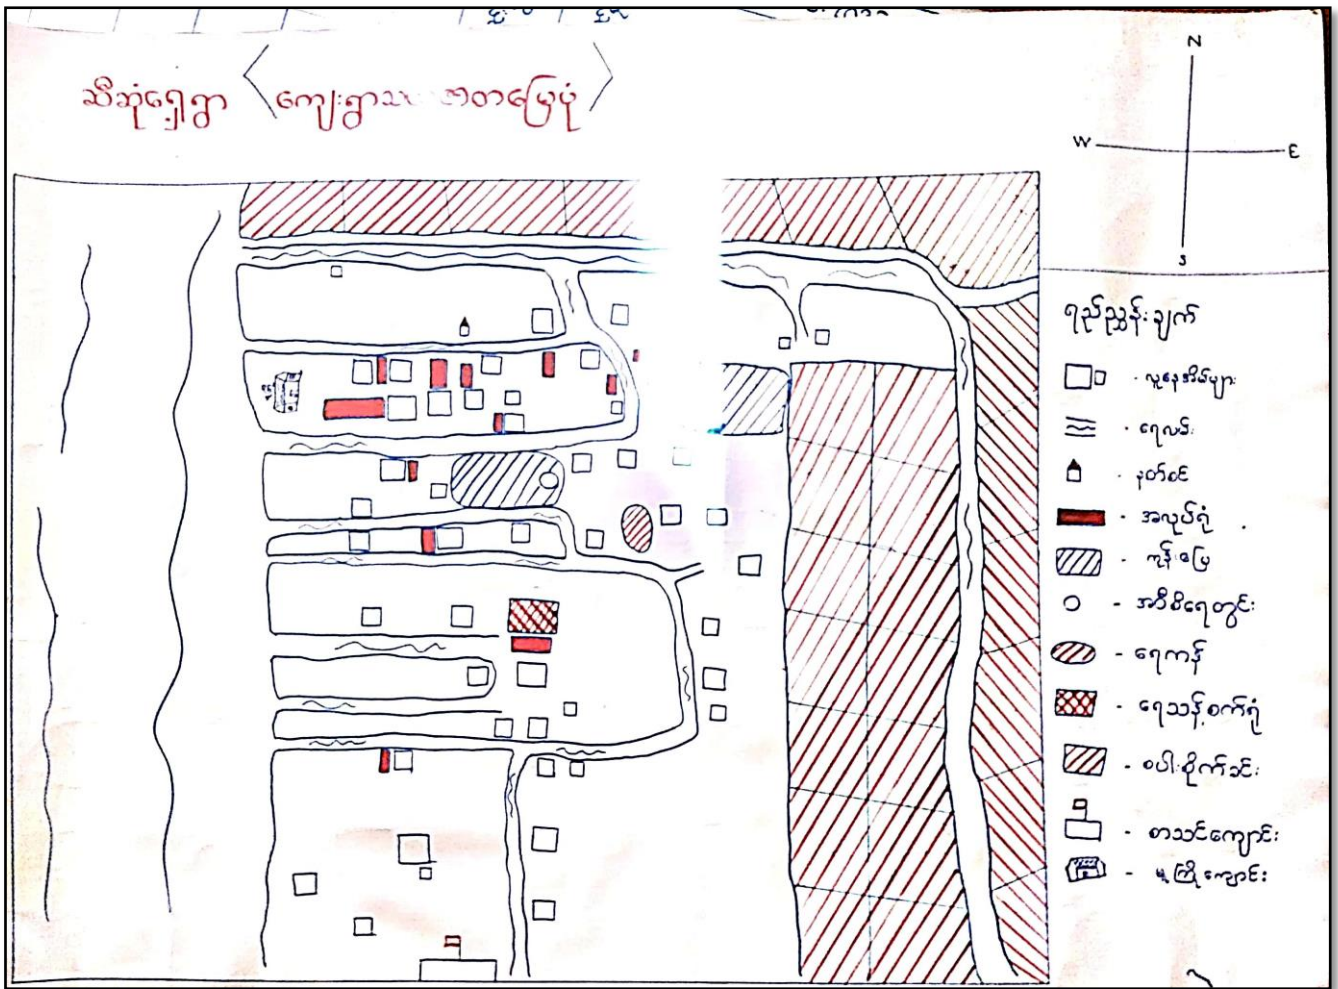 ဆီဆုံရှေ့ရွာ ကျေးရွာသ ဇာတာမြေပုံ
N
W E
S
ရည်ညွှန်းချက်
- လူနေအိမ်များ
- ရေလမ်း
- နတ်စင်
- အလုပ်ရုံ
- ကုန်းမြေ
- အဝီစိရေတွင်း
- ရေကန်
- ရေသန့်စက်ရုံ
- စပါးစိုက်ခင်း
- စာသင်ကျောင်း
- မူကြိုကျောင်း